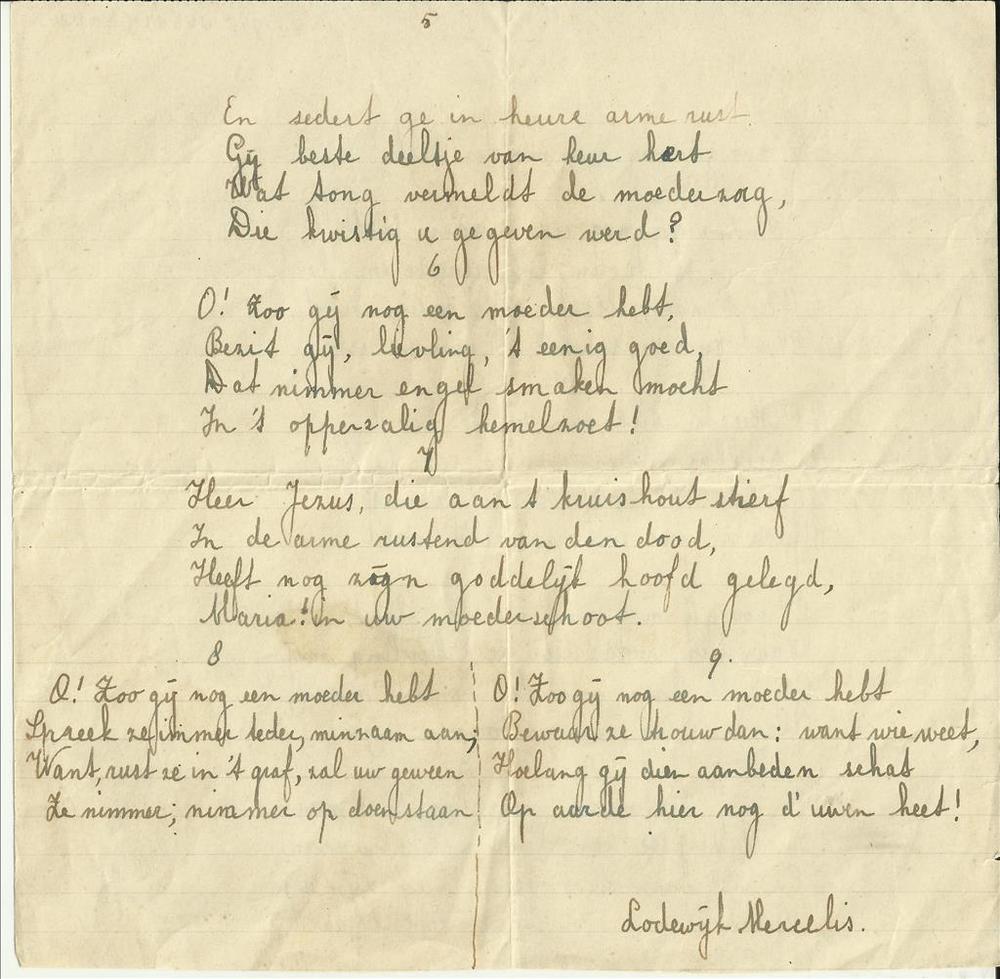 5
En sedert ge in heure arme rust
Gij beste deeltje van heur hart
Wat tong vermeldt de moederzorg,
Die kwistig u gegeven werd?
6
O! Zoo gij nog een moeder hebt,
Bezit gij, lieveling, 't eenig goed,
Dat nimmer engel smaken mocht
In 't opperzalig hemelzoet!
7
Heer Jezus, die aan t kruishout stierf
In de arme rustend van den dood,
Heeft nog zijn goddelijk hoofd gelegd,
Maria! in uw moederschoot.
8
O! Zoo gij nog een moeder hebt
Spreek ze immer teder, minzaam aan;
Want, rust ze in 't graf, zal uw geween
Ze nimmer; nimmer op doen staan
9.
O! Zoo gij nog een moeder hebt
Bewaar ze trouw dan: want wie weet,
Hoelang gij dien aanbeden schat
Op aarde hier nog d'uwen heet!
Lodewijk Mercelis.